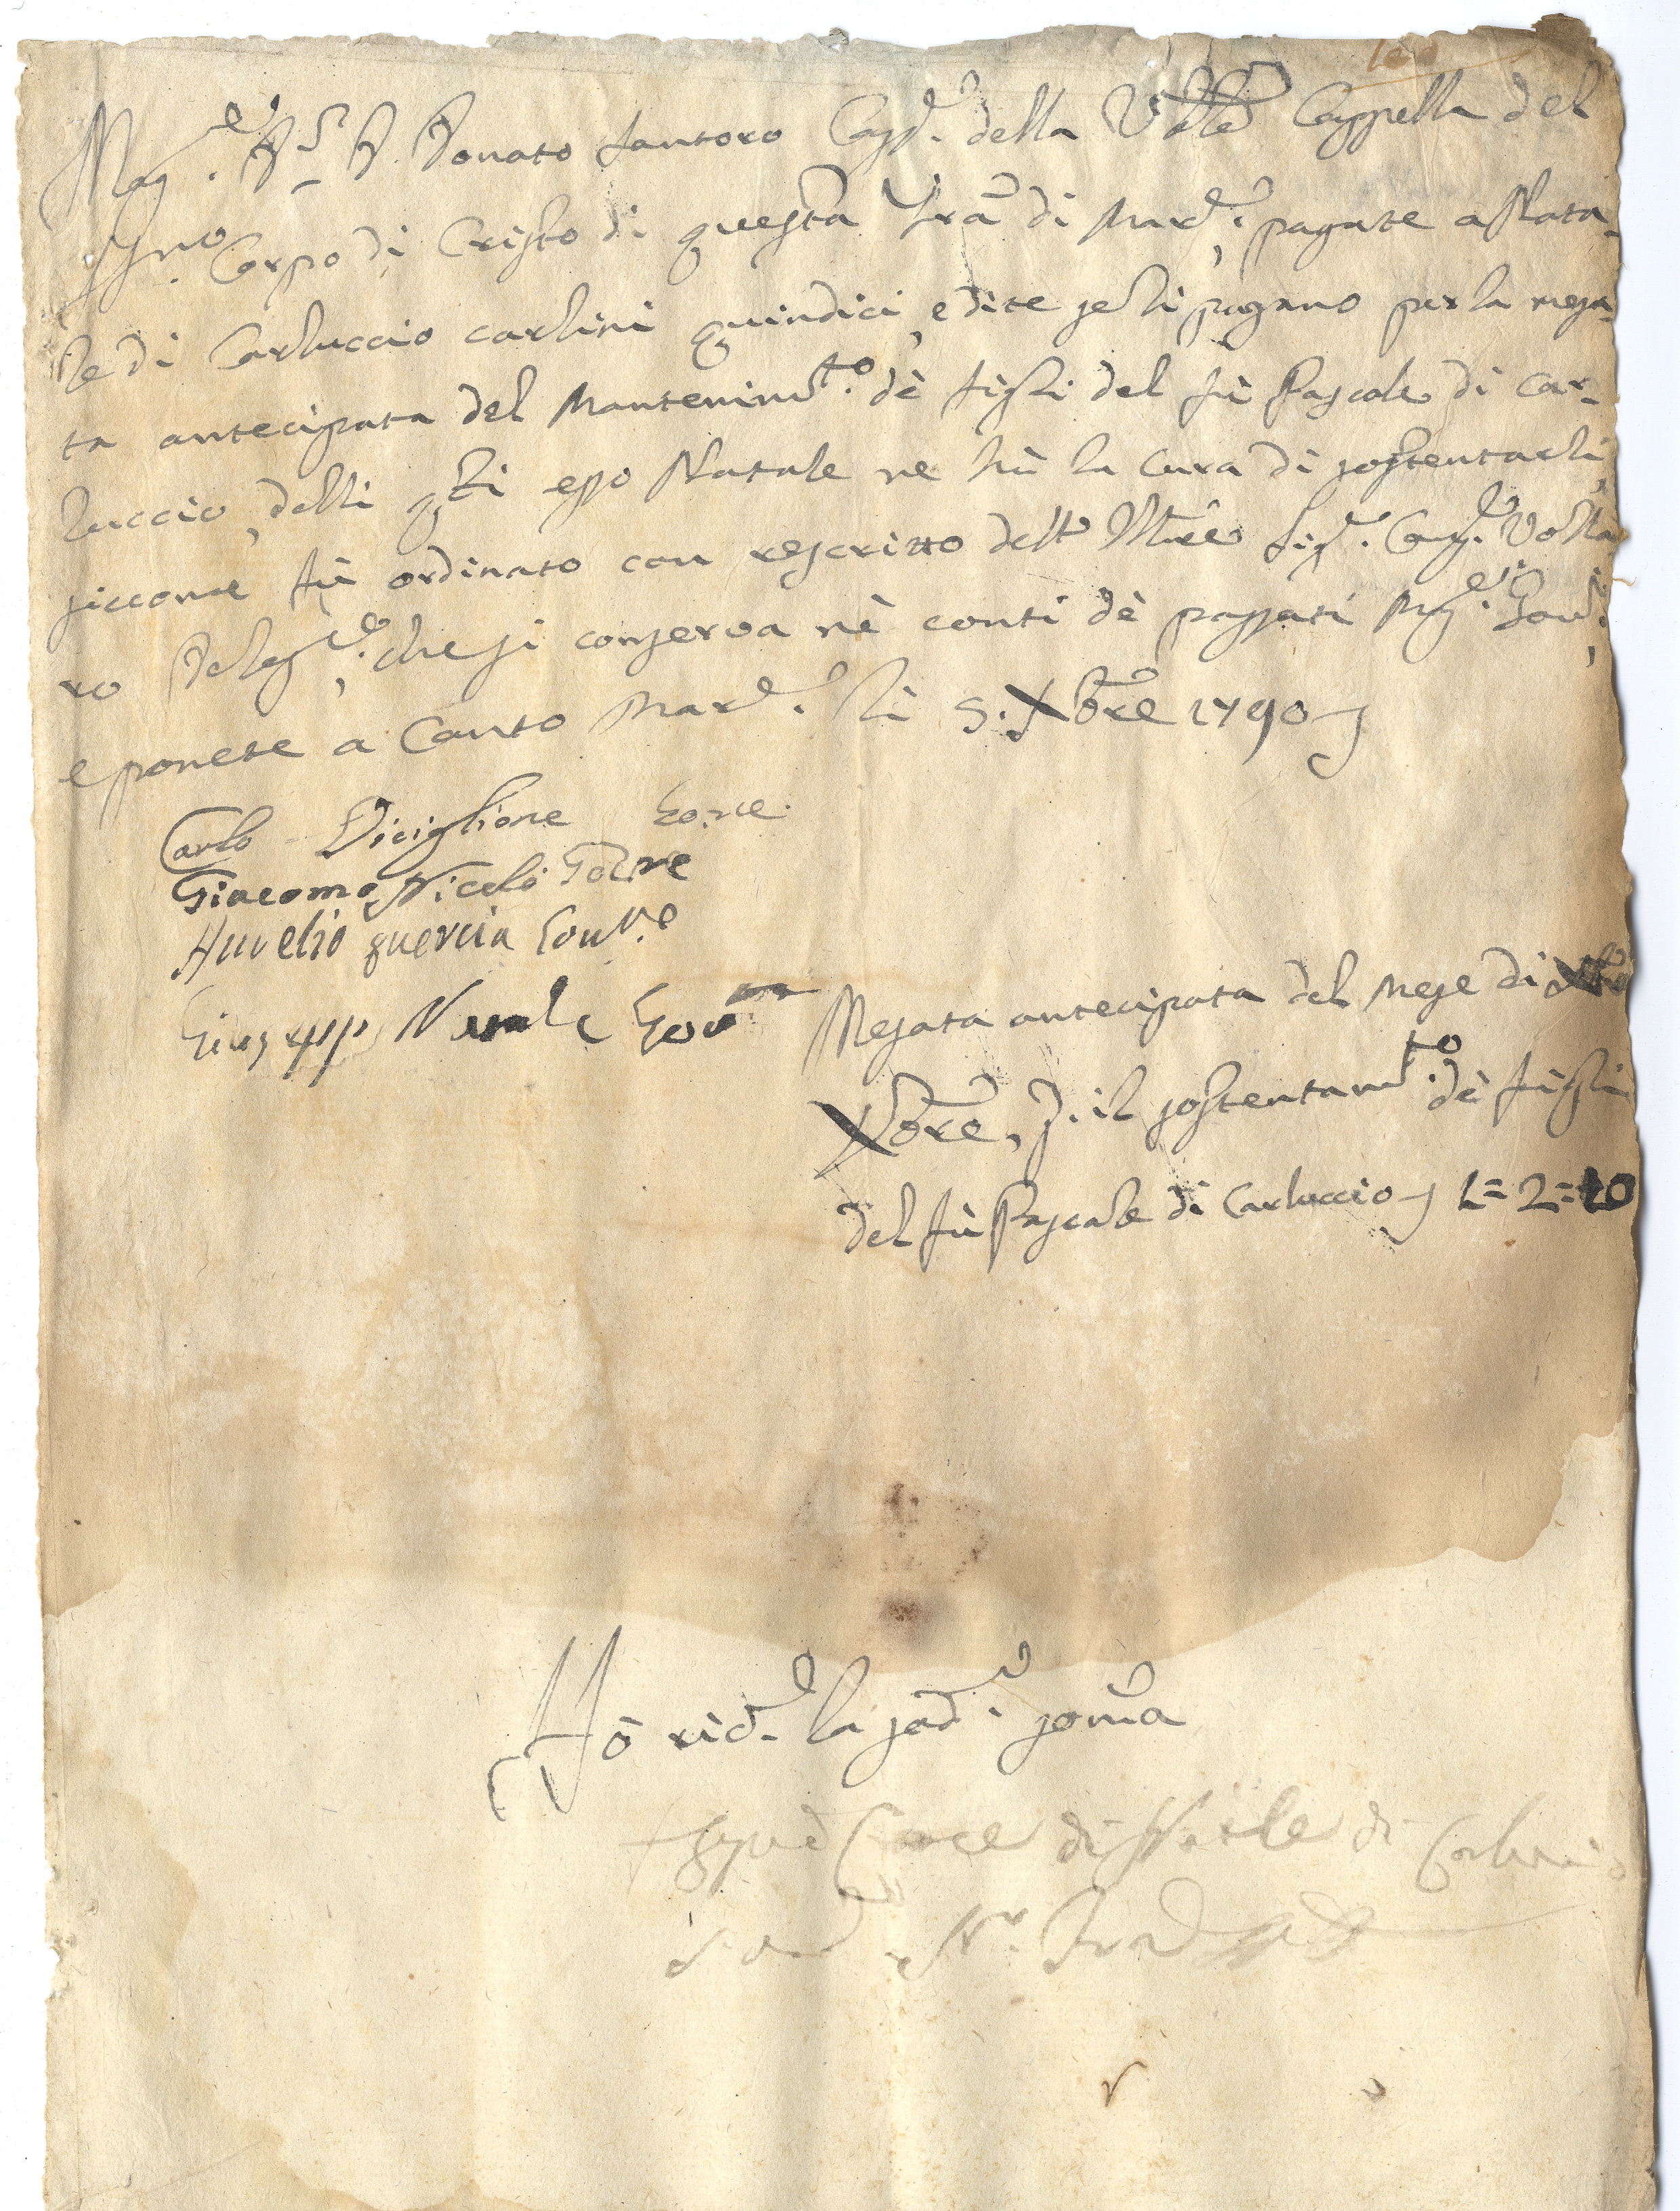 Mag.e D.r D. Donato Santoro Cass.e della V.ble Cappella del
SSmo Corpo di Cristo di questa Trã di Mard.e, pagate a Nata-
le di Carluccio carlini quindici, e dite se li pagano per la mesa-
ta antecipata del Mantenim.to dè figli del fù Pascale di Car-
luccio, delli q.li esso Natale ne hà la cura di sostentarli,
siccome fù ordinato con rescritto dell' Illmre Sig.e Cons.e Volla
ro Deleg.to, che si conserva nè conti dè passati Mag.ci Gov.i,
e ponete a Conto Mard.e li 5. Xbre 1790
Carlo Diciglione Go:re
Giacomo Nicolò Go:re
Aurelio quercia Gov.re
Giuseppe Natale Gov.re
Mesata antecipata del mese di
Xbre, p. il sostentam.to dè figli
del fù Pascale di Carluccio L= 2= 10
Hò ric.to la sud.a soma
+ Segno di Croce di Natale di Carluccio